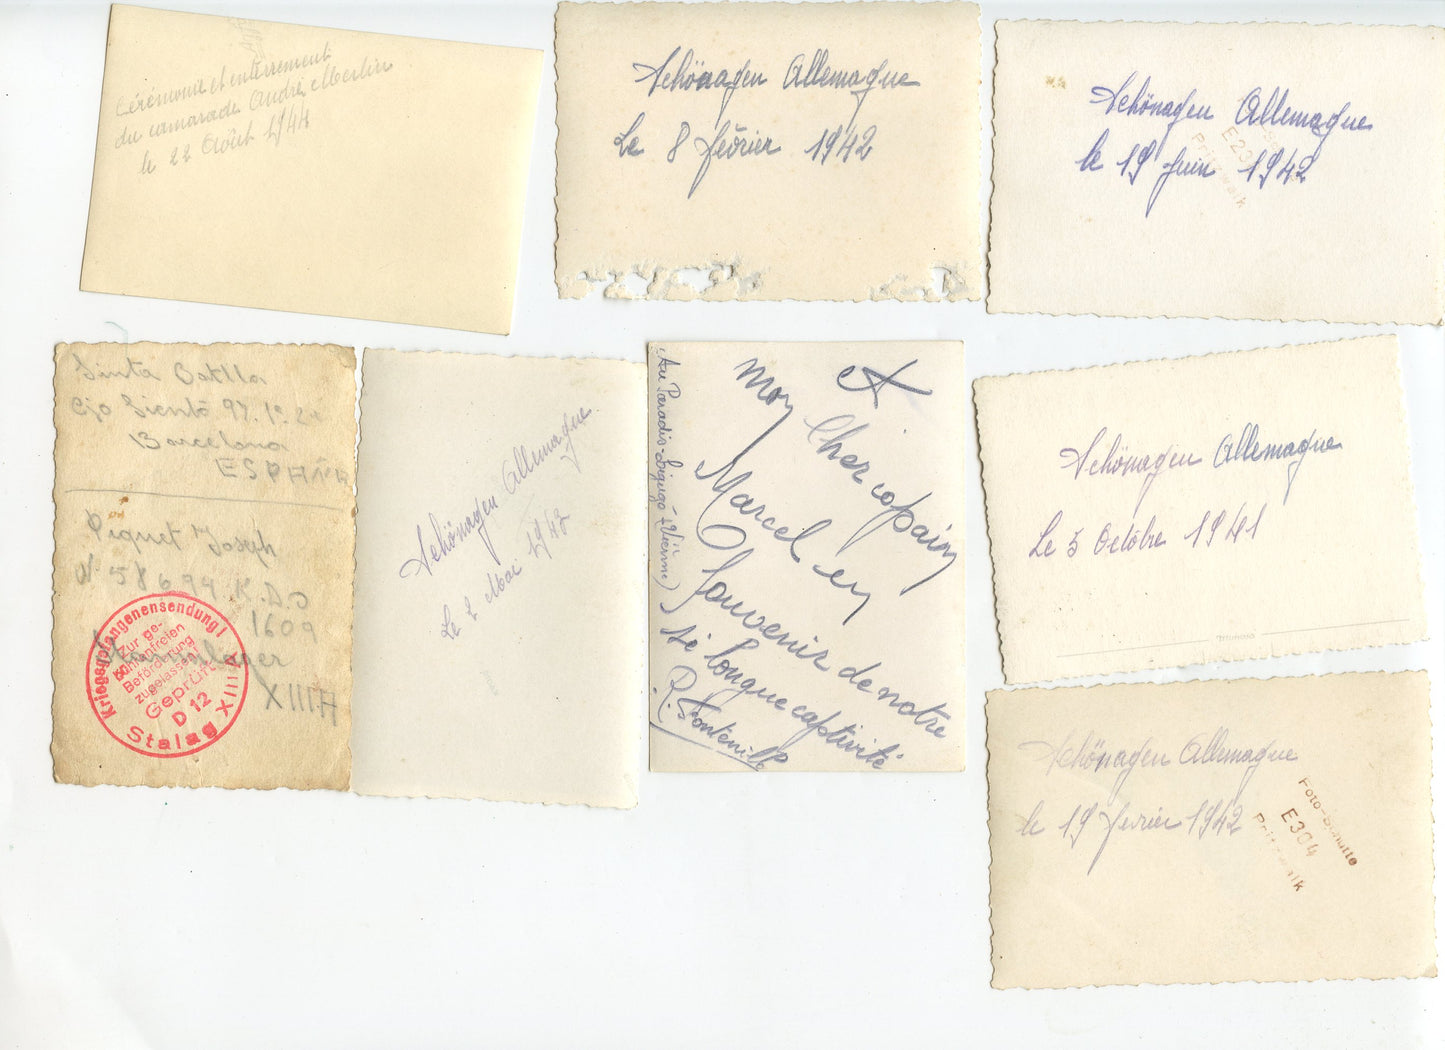 Cérémonie et enterrement
du camarade André Merlin
le 22 Août 1944
Schönagen Allemagne
Le 8 février 1942
Schönagen Allemagne
le 19 juin 1942
Pritzwalk
Barcelona
ESPAÑA
Piquet Joseph
N° 58694 K.D.O
1609
Stammlager
XIIIA
Kriegsgefangenensendung!
Zur ge-
bührenfreien
Beförderung
zugelassen!
Geprüft
D 12
Stalag XIII A
Schönagen Allemagne
Le 2 Mai 1942
Au Paradis Ligugé (Vienne)
mon Cher copain
Marcel en
Souvenir de notre
si longue captivité
R. Fonteville
Schönagen Allemagne
Le 5 Octobre 1941
Mimosa
Schönagen Allemagne
le 19 fevrier 1942
E304
Pritzwalk